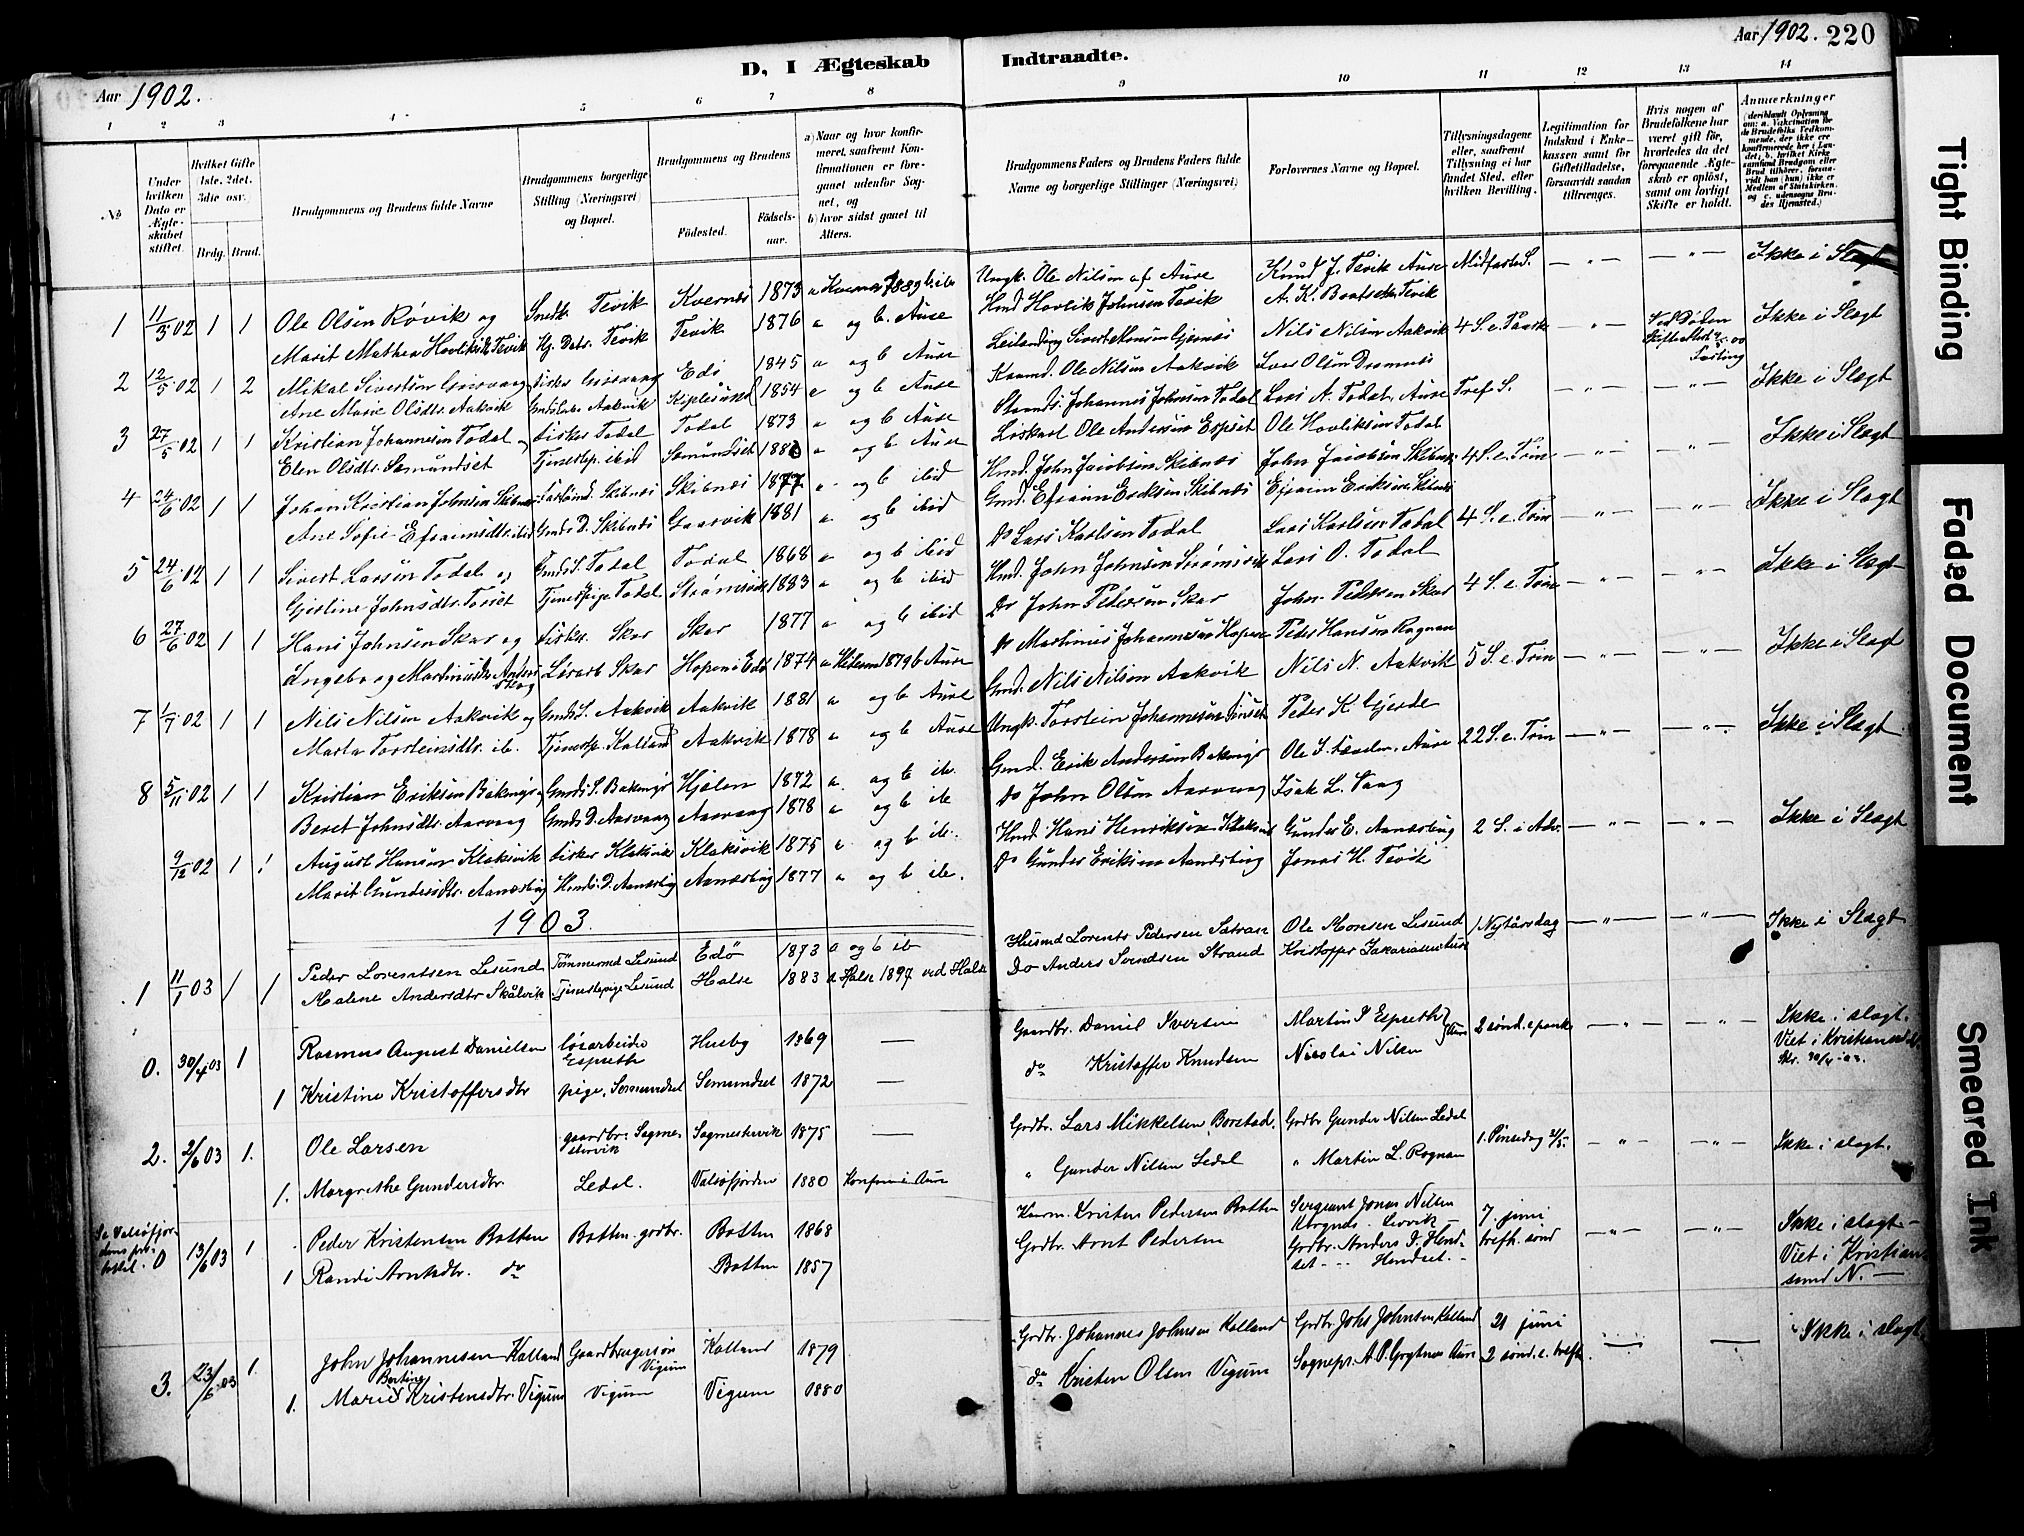 Aar 1902.
D, I Ægteskab Indtraadte.
Aar 1902. 220
1 2 3 4 5 6 7 8 9 10 11 12 13 14
No
Under hvilken Dato er Ægteskabet stiftet.
Hvilket Gifte (1ste, 2det, 3die osv.
Brdg. Brud.
Brudgommens og Brudens fulde Navne
Brudgommens borgerlige Stilling (Næringsvei) og Bopæl.
Brudgommens og Brudens
Födested. Födselsaar.
a) Naar og hvor konfirmeret, saafremt Konfirmationen er foregaaet udenfor Sognet, og
b) hvor sidst gaaet til Alters.
Brudgommens Faders og Brudens Faders fulde Navne og borgerlige Stillinger (Næringsvei)
Forlovernes Navne og Bopæl.
Tillysningsdagene eller, saafremt Tillysning ei har fundet Sted, efter hvilken Bevilling.
Legitimation for Indskud i Enkekassen samt for Giftetilladelse, forsaavidt saadan tiltrænges.
Hvis nogen af Brudefolkene har været gift för, hvorledes da det foregaaende Ægteskab er oplöst, samt om lovligt Skifte er holdt.
Anmærkninger
(deriblandt Oplysning om: a. Vaccination for de Brudefolks Vedkommende, der ikke ere konfirmerede her i Landet; b. hvilket Kirkesamfund Brudgom eller Brud tilhörer, forsaavidt han (hun) ikke er Medlem af Statskirken, og c. udensogns Brudes Hjemsted.)
1 11/3 02 1 1 Ole Olsen Røvik og Snedk. Tevik Kvernes 1873 a Kvernes 1889 b. ibi Ungk. Ole Nilsen af Aure Knud J. Tevik Aure Midfaste S. Ikke i Slægt
Marit Mathea Hovliksdtr Tevik Hj. Datr. Tevik Tevik 1876 a og b. Aure Hmd Hovlik Johnsen Tevik
2 12/5 02 1 2 Mikal Sivertsen Grisvaag Fisker Grisvaag Edø 1845 a og b Aure Nils Nilsen Aakvik 4 S. e. Paask Ved Døden Ikke i Slægt
Ane Marie Olsdtr. Aakvik Aakvik 1854 a og b Aure Ole Nilsen Aakvik Iver Olsen
3 27/5 02 1 1 Kristian Johannesen Todal Fisker Todal Todal 1873 a og b Aure Johannes Johnsen Todal Lars A. Todal, Aure Tref. S. Ikke i Slægt
Elen Olsdtr. Semundset Tjenestep. ibid Semundset a og b Aure Ole Andersen Espset Ole Hovliksen Todal
4 24/6 02 1 1 Johan Kristian Johnsen Skibnes Skibnes Skibnes 1877 a og b ibid Hmd. John Jacobsen Skibnes John Jacobsen Skibnes 4 S. e. Trin Ikke i Slægt
Ane Sofie Efraimsdtr. ibid Gmds D. Skibnes Gaarvik 1881 a og b ibid Gmd. Efraim Eriksen Skibnes Efraim Eriksen Skibnes
5 24/6 02 1 1 Sivert Larsen Todal og Gmds S. Todal Todal 1868 a og b ibid Do Lars Karlsen Todal Lars Karlsen Todal 4 S. e. Trin Ikke i Slægt
Gjertine Johnsdtr. Torset Tjenestpige Todal 1883 a og b ibid Hmd. John Johnsen Lars O. Todal
6 27/6 02 1 1 Hans Johnsen Skar og Fisker. Skar Skar 1877 a og b ibid Do John Pedersen Skar John Pedersen Skar 4 S. e. Trin Ikke i Slægt
Ingebor Skar Hopen i Edø 1874 b Aure Do Martinus Johannesen Hopen Peder Hansen Rognan
7 1/7 02 1 1 Nils Nilsen Aakvik og Gmds S. Aakvik Aakvik 1881 a og b Aure Gmd. Nils Nilsen Aakvik Nils N. Aakvik 5 S. e. Trin Ikke i Slægt
Marta Torsteinsdtr. ib. Tjenestp. Kalland Aakvik 1878 a og b Aure Ungk. Torstein Johannesen Peder K. Gjerde
8 5/11 02 1 1 Kristian Eriksen Bakengs Gmds S. Bakengs Hjelen 1872 a og b ib. Gmd. Erik Andersen Bakengs Ole S. Aure 22 S. e. Trin Ikke i Slægt
Beret Johnsdtr. Aarvaag Gmds D. Aarvaag Aarvaag 1878 a og b ib Do John Olsen Aarvaag Isak L. Vaag
9/12 02 1 1 August Hansen Klaksvik Fisker Klaksvik Klaksvik 1875 a og b ib. Hmd. Hans Henriksen Klaksvik Gunder E. Aanesbug 2 S. i Adv. Ikke i Slægt
Marit Gundersdtr. Aanesbug Hmds D. Aanesbug Aanesbug 1877 a og b ib. Do Gunder Eriksen Aanesbug Jonas H. Tevik
1903.
1 11/1 03 1 1 Peder Lorentsen Lesund Tømmermd Lesund Edö 1873 a og b ib Husmd Lorents Pedersen Sætran Ole Monsen Lesund Nytårsdag Ikke i Slægt
Malene Andersdtr Skålvik Tjenestepige Lesund Halse 1883 a Halse 1897 ved Halse Do Anders Svendsen Strand Kristoffer Zakariassen Aure
0. 30/4 03 1 Rasmus August Danielsen løsarbeider Espseth Husby 1869 Gaardbr. Daniel Iversen Martin P Espseth 2 sönd. e paaske Ikke i slægt. Viet i Kristianssund
1 Kristine Kristoffersdtr pige, Semundset Semundset 1872 do Kristoffer Knudsen Nicolai Nilsen Aure
2. 2/6 03 1. Ole Larsen gaardbr. Sagmestervik Sagmestervik 1875 Grdbr. Lars Mikkelsen Borstad Grdbr Gunder Nilsen Ledal 1. Pinsedag 31/5. Ikke i slægt.
1. Margrethe Gundersdtr. Ledal. Valsøfjorden 1880 Konfirm i Aure " Gunder Nilsen Ledal " Martin L. Rognan
Se Valsøfjordens 0 13/6 03 1 Peder Kristensen Botten Botten. grdbr. Botten 1868 Kaarm. Kristen Pedersen Botten Sergeant Jonas Nilsen 7. juni Ikke i slægt
1 Randi Arntsdtr. do Botten 1857 Grdbr. Arnt Pedersen Grdbr. Anders P. Hendset Hendset. trefh. sönd Viet i Kristianssund N.
3. 23/6 03 1. John Johannesen Kalland Gaardbrugersøn Vigum Kalland 1879 Grdbr. Johannes Johnsen Kalland Grdbr. Johs Johnsen Kalland 21 juni Ikke i slægt
1. Marie Berting Kristensdtr. Vigum Vigum Vigum 1880 do Kristen Olsen Vigum Sognepr. A. P. Grytnes Aure 2 sönd. e. trefh.
Tight Binding
Faded Document
Smeared Ink